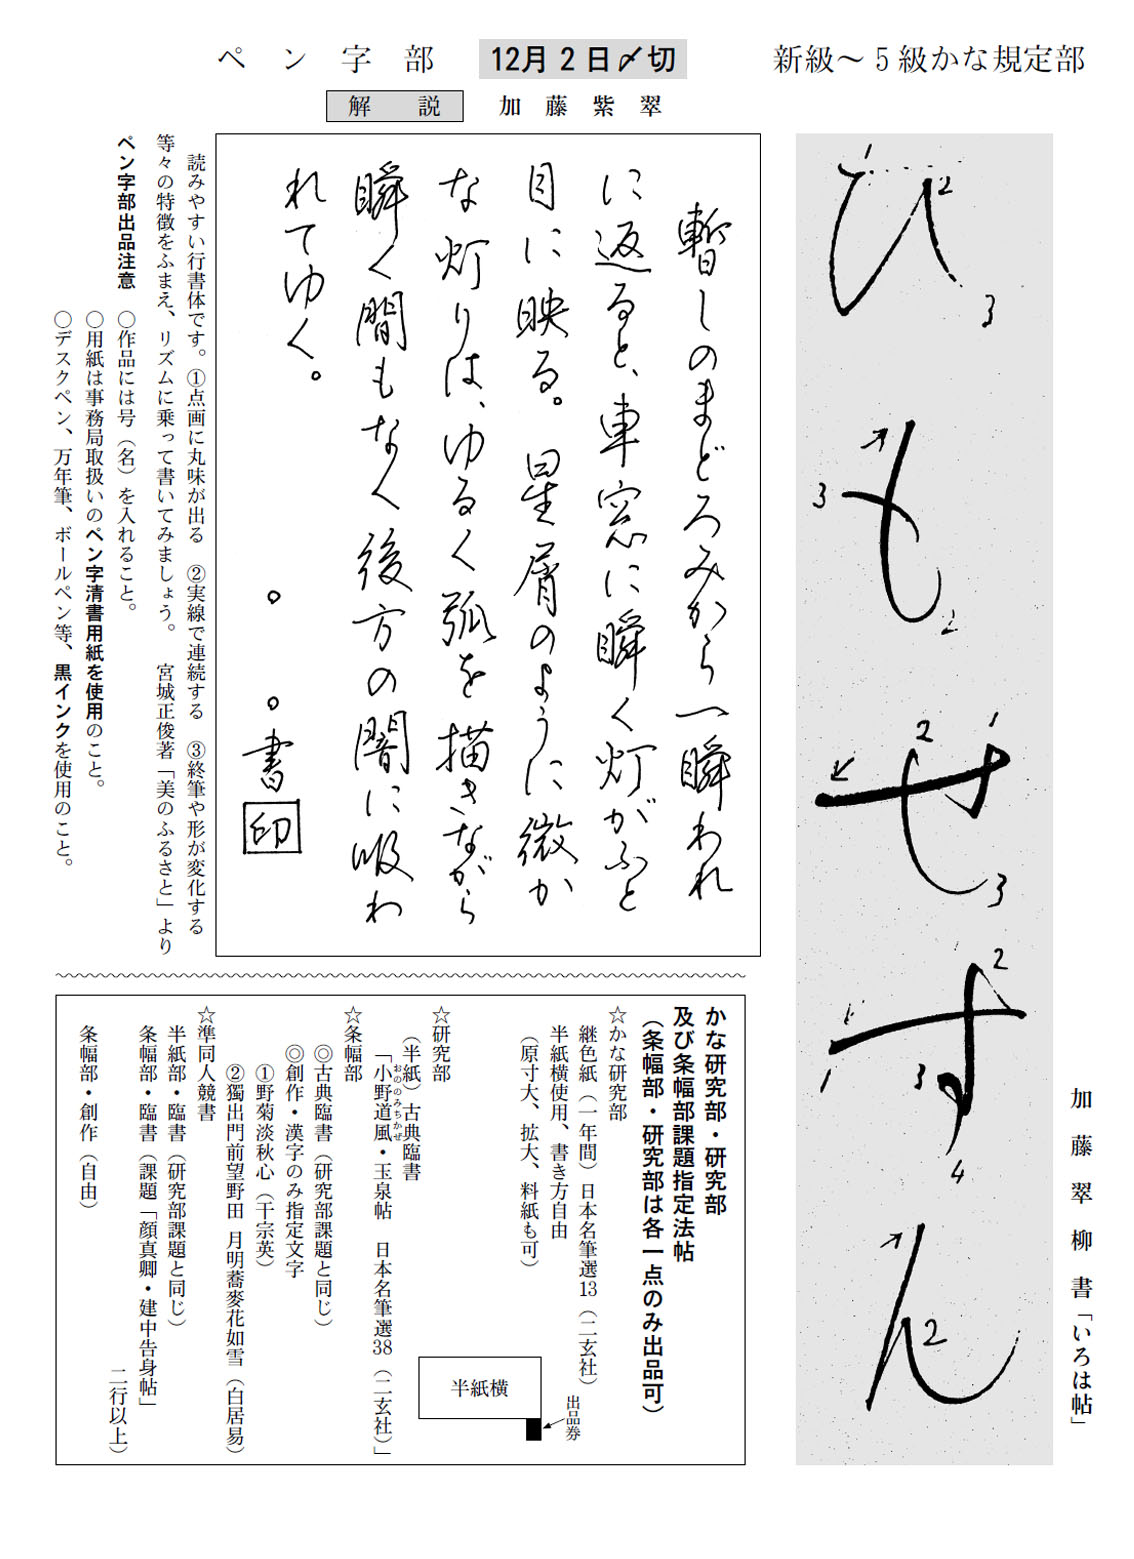 新級〜５級かな規定部
ひもせすん
加藤翠柳書「いろは帖」
ペン字部
12月2日〆切
解説　加藤紫翠
暫しのまどろみから一瞬われ
に返ると、車窓に瞬く灯がふと
目に映る。星屑のように微か
な灯りは、ゆるく弧を描きながら
瞬く間もなく後方の闇に吸わ
れてゆく。
。　。書　印
読みやすい行書体です。①点画に丸味が出る　②実線で連続する　③終筆や形が変化する
等々の特徴をふまえ、リズムに乗って書いてみましょう。　宮城正俊著「美のふるさと」より
ペン字部出品注意　○作品には号（名）を入れること。
○用紙は事務局取扱いのペン字清書用紙を使用のこと。
○デスクペン、万年筆、ボールペン等、黒インクを使用のこと。
かな研究部・研究部
及び条幅部課題指定法帖
（条幅部・研究部は各一点のみ出品可）
☆かな研究部
継色紙（一年間）日本名筆選13（二玄社）
半紙横使用、書き方自由
（原寸大、拡大、料紙も可）
半紙横
出品券
☆研究部
（半紙）古典臨書
「小野道風・玉泉帖　日本名筆選38（二玄社）」
おののみちかぜ
☆条幅部
◎古典臨書（研究部課題と同じ）
◎創作・漢字のみ指定文字
①野菊淡秋心（干宗英）
②獨出門前望野田　月明蕎麥花如雪（白居易）
☆準同人競書
半紙部・臨書（研究部課題と同じ）
条幅部・臨書（課題「顔真卿・建中告身帖」
二行以上）
条幅部・創作（自由）